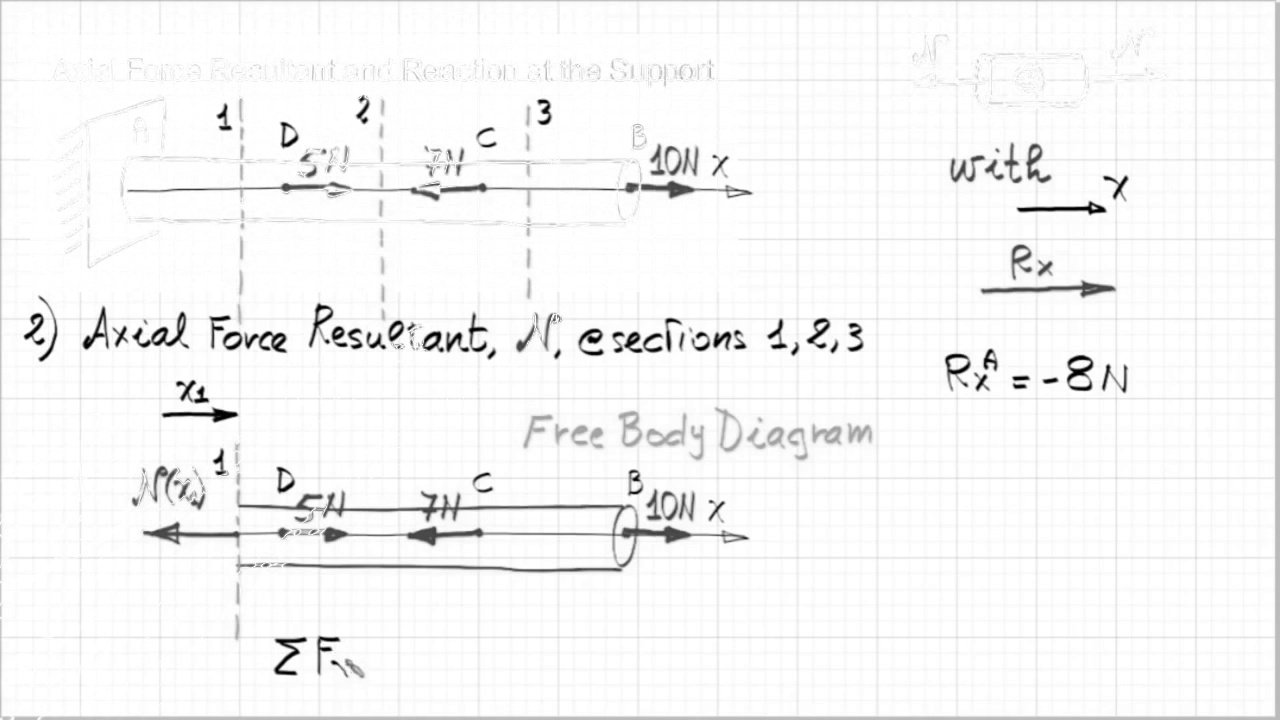 Axial Force Resultant and Reaction at the Support
N N
1 2 3
A D 5N 7N C B 10N x
with x
Rx
2) Axial Force Resultant, N, @sections 1,2,3
RxA = -8N
x1
Free Body Diagram
N(x1) 1 D 5N 7N C B 10N x
ΣF